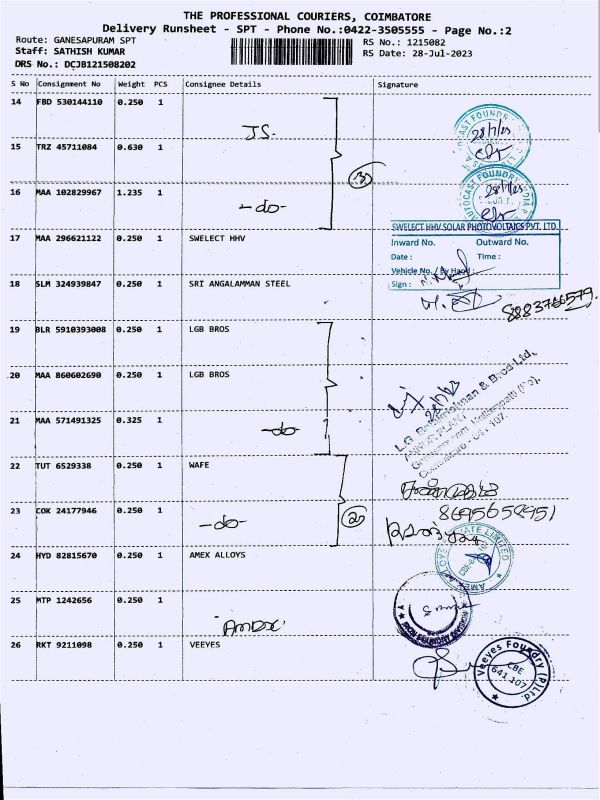 THE PROFESSIONAL COURIERS, COIMBATORE
Delivery Runsheet - SPT - Phone No.:0422-3505555 - Page No.:2
Route: GANESAPURAM SPT
RS No.: 1215082
Staff: SATHISH KUMAR
RS Date: 28-Jul-2023
DRS No.: DCJB121508202
S No Consignment No Weight PCS Consignee Details Signature
14 FBD 530144110 0.250 1
J.S.
28/7/23
15 TRZ 45711084 0.630 1
3
AUTOCAST FOUNDRY
28/7/23
16 MAA 102829967 1.235 1
-do-
SWELECT HHV SOLAR PHOTOVOLTAICS PVT. LTD.
17 MAA 296621122 0.250 1 SWELECT HHV
Inward No. Outward No.
Date : Time :
Vehicle No. / By Hand :
Sign :
18 SLM 324939847 0.250 1 SRI ANGALAMMAN STEEL
8883766579.
19 BLR 5910393008 0.250 1 LGB BROS
20 MAA 860602690 0.250 1 LGB BROS
28/7/23
L.G. Balakrishnan & Bros Ltd.,
21 MAA 571491325 0.325 1
-do-
Coimbatore - 641 107.
22 TUT 6529338 0.250 1 WAFE
8695658951
23 COK 24177946 0.250 1
-do-
2
24 HYD 82815670 0.250 1 AMEX ALLOYS
AMEX ALLOYS PRIVATE LIMITED
25 MTP 1242656 0.250 1
AMEX
IRON FOUNDRY DIVISION
26 RKT 9211098 0.250 1 VEEYES
Veeyes Foundry (P) Ltd.
CBE
641 107